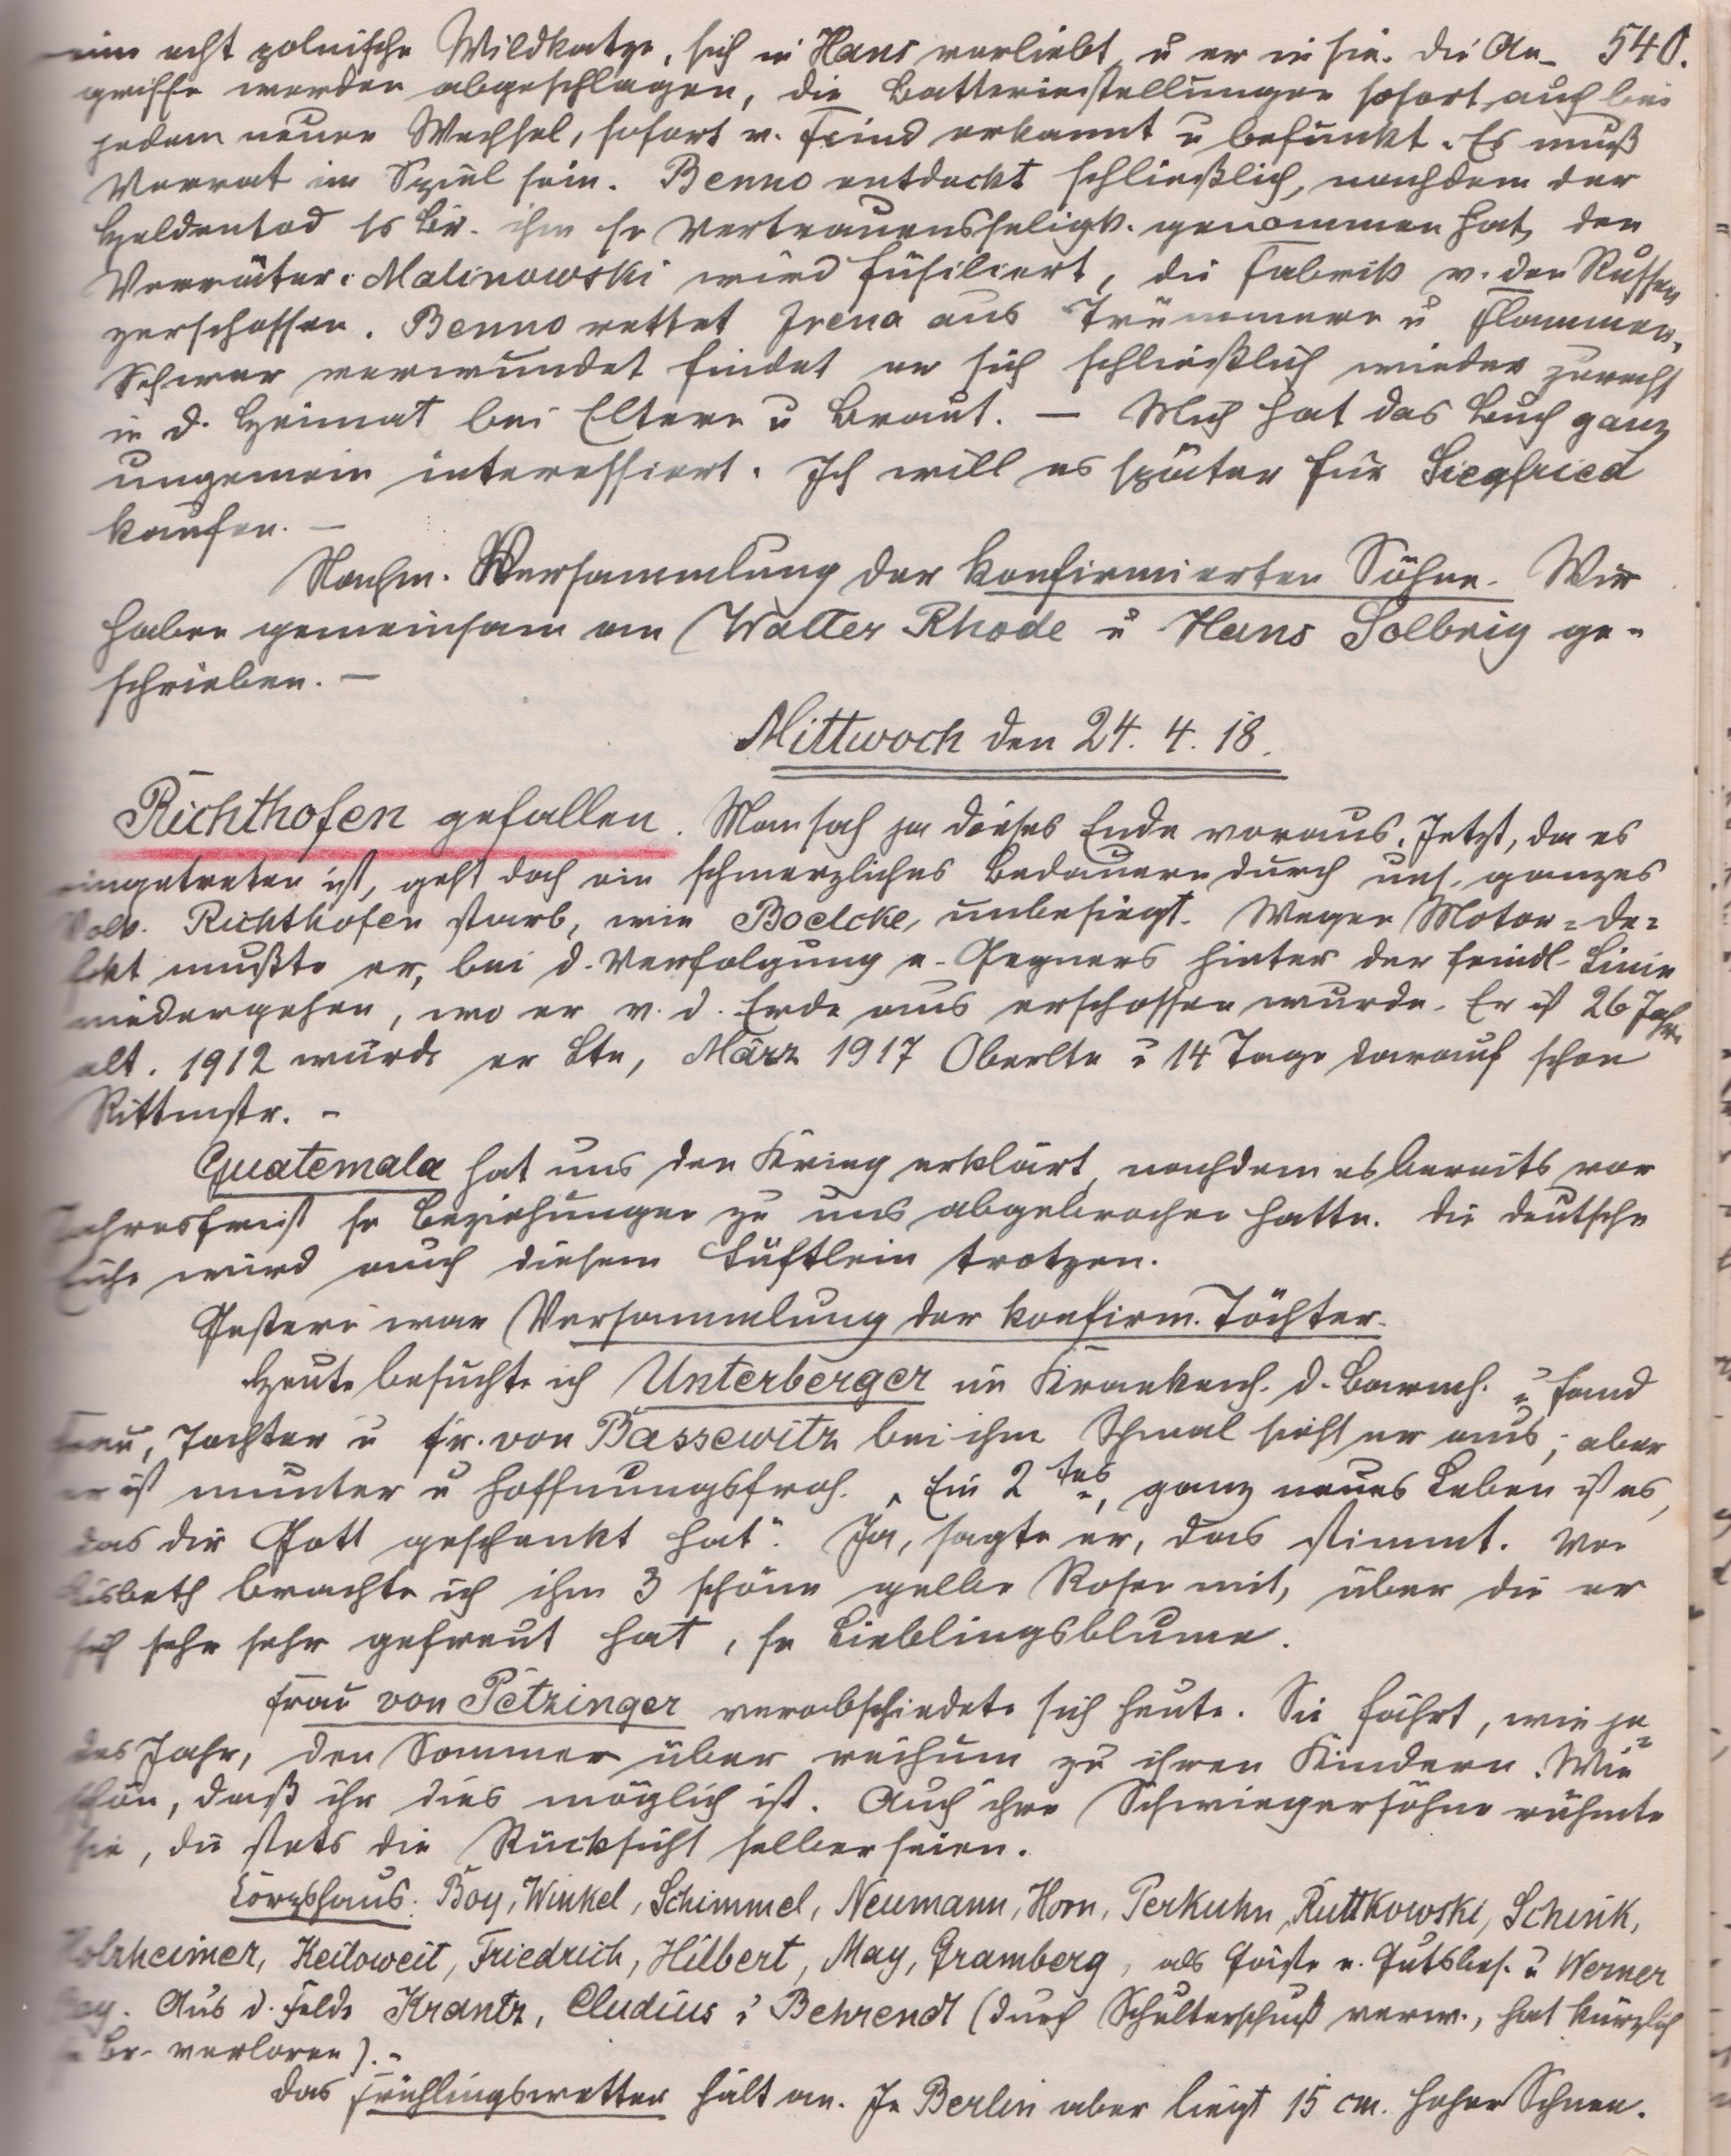 eine echt polnische Wildkatze, sich in Hans verliebt u er in sie. Die An- 540.
griffe werden abgeschlagen, die Batteriestellungen sofort auch bei
jedem neuen Wechsel, sofort v. Feind erkannt u befunkt. Es muß
Verrat im Spiel sein. Benno entdeckt schließlich, nachdem der
Heldentod ss Br. ihm se Vertrauensseligk. genommen hat, den
Verräter: Malinowski wird füsiliert, die Fabrik v. den Russen
zerschossen. Benno rettet Irena aus Trümmern u Flammen.
Schwer verwundet findet er sich schließlich wieder zurecht
in d. Heimat bei Eltern u Braut. — Mich hat das Buch ganz
ungemein interessiert. Ich will es später für Siegfried
kaufen. —
Nachm. Versammlung der konfirmierten Söhne. Wir
haben gemeinsam an Walter Rhode u Hans Solbrig ge-
schrieben. —
Mittwoch den 24. 4. 18.
Richthofen gefallen. Man sah ja dieses Ende voraus. Jetzt, da es
eingetreten ist, geht doch ein schmerzliches Bedauern durch uns. ganzes
Volk. Richthofen starb, wie Boelcke, unbesiegt. Wegen Motor-De-
fekt mußte er, bei d. Verfolgung e. Gegners hinter der feindl. Linie
niedergehen, wo er v. d. Erde aus erschossen wurde. Er ist 26 Jahre
alt. 1912 wurde er Ltn, März 1917 Oberltn u 14 Tage darauf schon
Rittmstr. -
Guatemala hat uns den Krieg erklärt, nachdem es bereits vor
Jahresfrist se Beziehungen zu uns abgebrochen hatte. Die deutsche
Eiche wird auch diesem Lüftlein trotzen.
Gestern war Versammlung der konfirm. Töchter.
Heute besuchte ich Unterberger im Krankenh. d. Barmh. u fand
Frau, Tochter u Fr. von Bassewitz bei ihm. Schmal sieht er aus, aber
er ist munter u hoffnungsfroh. „Ein 2tes, ganz neues Leben ist es,
das dir Gott geschenkt hat“. Ja, sagte er, das stimmt. Von
Lisbeth brachte ich ihm 3 schöne gelbe Rosen mit, über die er
sich sehr sehr gefreut hat, se Lieblingsblume.
Frau von Petzinger verabschiedete sich heute. Sie fährt, wie je-
des Jahr, den Sommer über reihum zu ihren Kindern. Wie
schön, daß ihr dies möglich ist. Auch ihre Schwiegersöhne rühmte
sie, die stets die Rücksicht selber seien.
Korpshaus: Boy, Winkel, Schimmel, Neumann, Horn, Perkuhn, Ruttkowski, Schink,
Holzheimer, Keiloweit, Friedrich, Hilbert, May, Gramberg, als Gäste e. Gutsbes. u Werner
Aus d. Felde Krantz, Cludius u Behrendt (durch Schulterschuß verw., hat kürzlich
e Br. verloren). -
Das Frühlingswetter hält an. In Berlin aber liegt 15 cm. hoher Schnee.